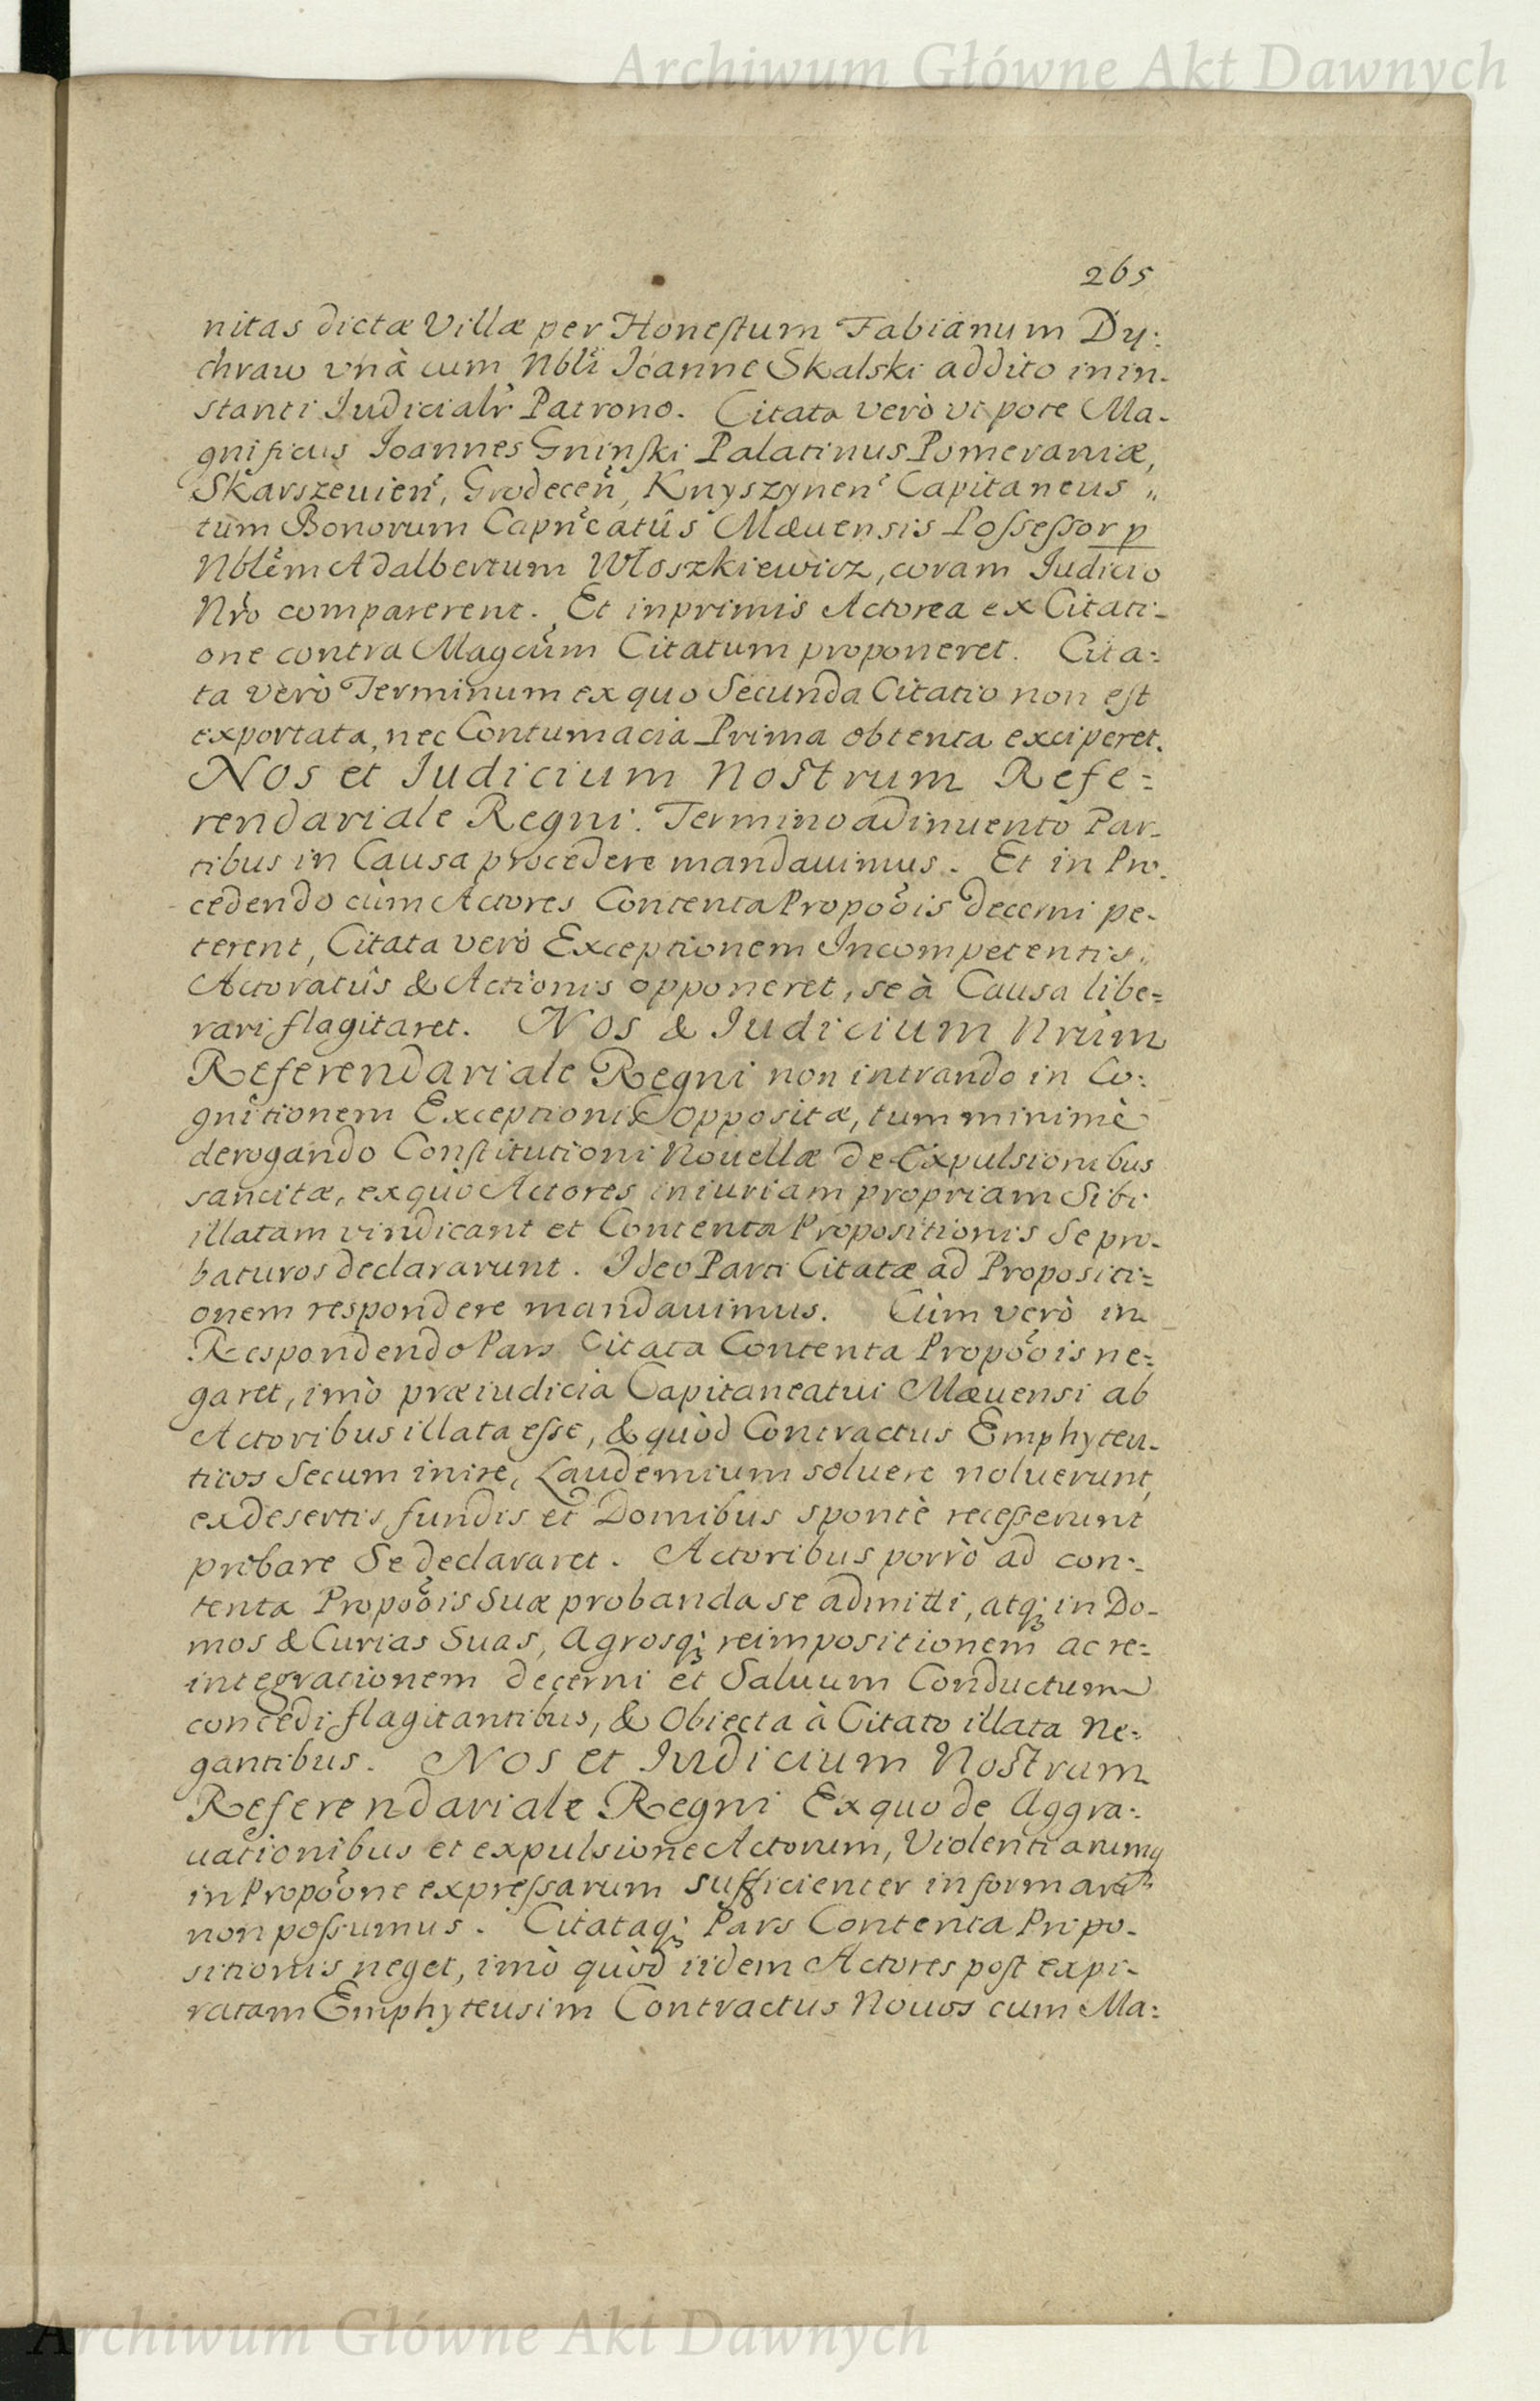 Archiwum Główne Akt Dawnych
265
nitas dictæ Villæ per Honestum Fabianum Dy:
chraw vnà cum Nbli Joanne Skalski addito in in-
stanti Judicialr Patrono. Citata verò vt pote Ma-
gnificus Joannes Gninski Palatinus Pomeraniæ,
Skarszeuien, Grodecen, Knyszynen Capitaneus,,
tum Bonorum Capncatûs Mæuensis Possessor p
Nblem Adalbertum Włoszkiewicz, coram Judicio
Nro comparerent. Et inprimis Actorea ex Citati-
one contra Magcum Citatum proponeret. Cita:
ta verò Terminum ex quo Secunda Citatio non est
exportata, nec Contumacia Prima obtenta exciperet.
Nos et Judicium Nostrum Refe:
rendariale Regni. Termino adinuento Par-
tibus in Causa procedere mandauimus. Et in Pro-
cedendo cùm Actores Contenta Propoois decerni pe-
terent, Citata verò Exceptionem Incompetentis,,
Actoratûs & Actionis opponeret, se à Causa libe=
rari flagitaret. Nos & Judicium Nrum
Referendariale Regni non intrando in Co:
gnitionem Exceptionis Oppositæ, tum minimè
derogando Constitutioni Nouellæ de Expulsionibus
sancitæ, ex quo Actores iniuriam propriam Sibi
illatam vindicant et Contenta Propositionis Se pro-
baturos declararunt. Ideo Parti Citatæ ad Propositi=
onem respondere mandauimus. Cùm verò in
Respondendo Pars Citata Contenta Propoois ne:
garet, imò præiudicia Capitaneatui Mæuensi ab
Actoribus illata esse, & quòd Contractus Emphyteu-
ticos Secum inire, Laudemium soluere noluerunt,
ex desertis fundis et Domibus spontè recesserunt
probare Se declararet. Actoribus porrò ad con-
tenta Propoois Suæ probanda se admitti, atq; in Do-
mos & Curias Suas, Agrosq; reimpositionem ac re=
integrationem decerni et Saluum Conductum
concedi flagitantibus, & Obiecta à Citato illata Ne:
gantibus. Nos et Judicium Nostrum
Referendariale Regni Ex quo de Aggra-
uationibus et expulsione Actorum, Violentiarumq
in Propoone expressarum sufficienter informari
non possumus. Citataq; Pars Contenta Propo-
sitionis neget, imò quòd iidem Actores post expi-
ratam Emphyteusim Contractus Nouos cum Ma:
Archiwum Główne Akt Dawnych